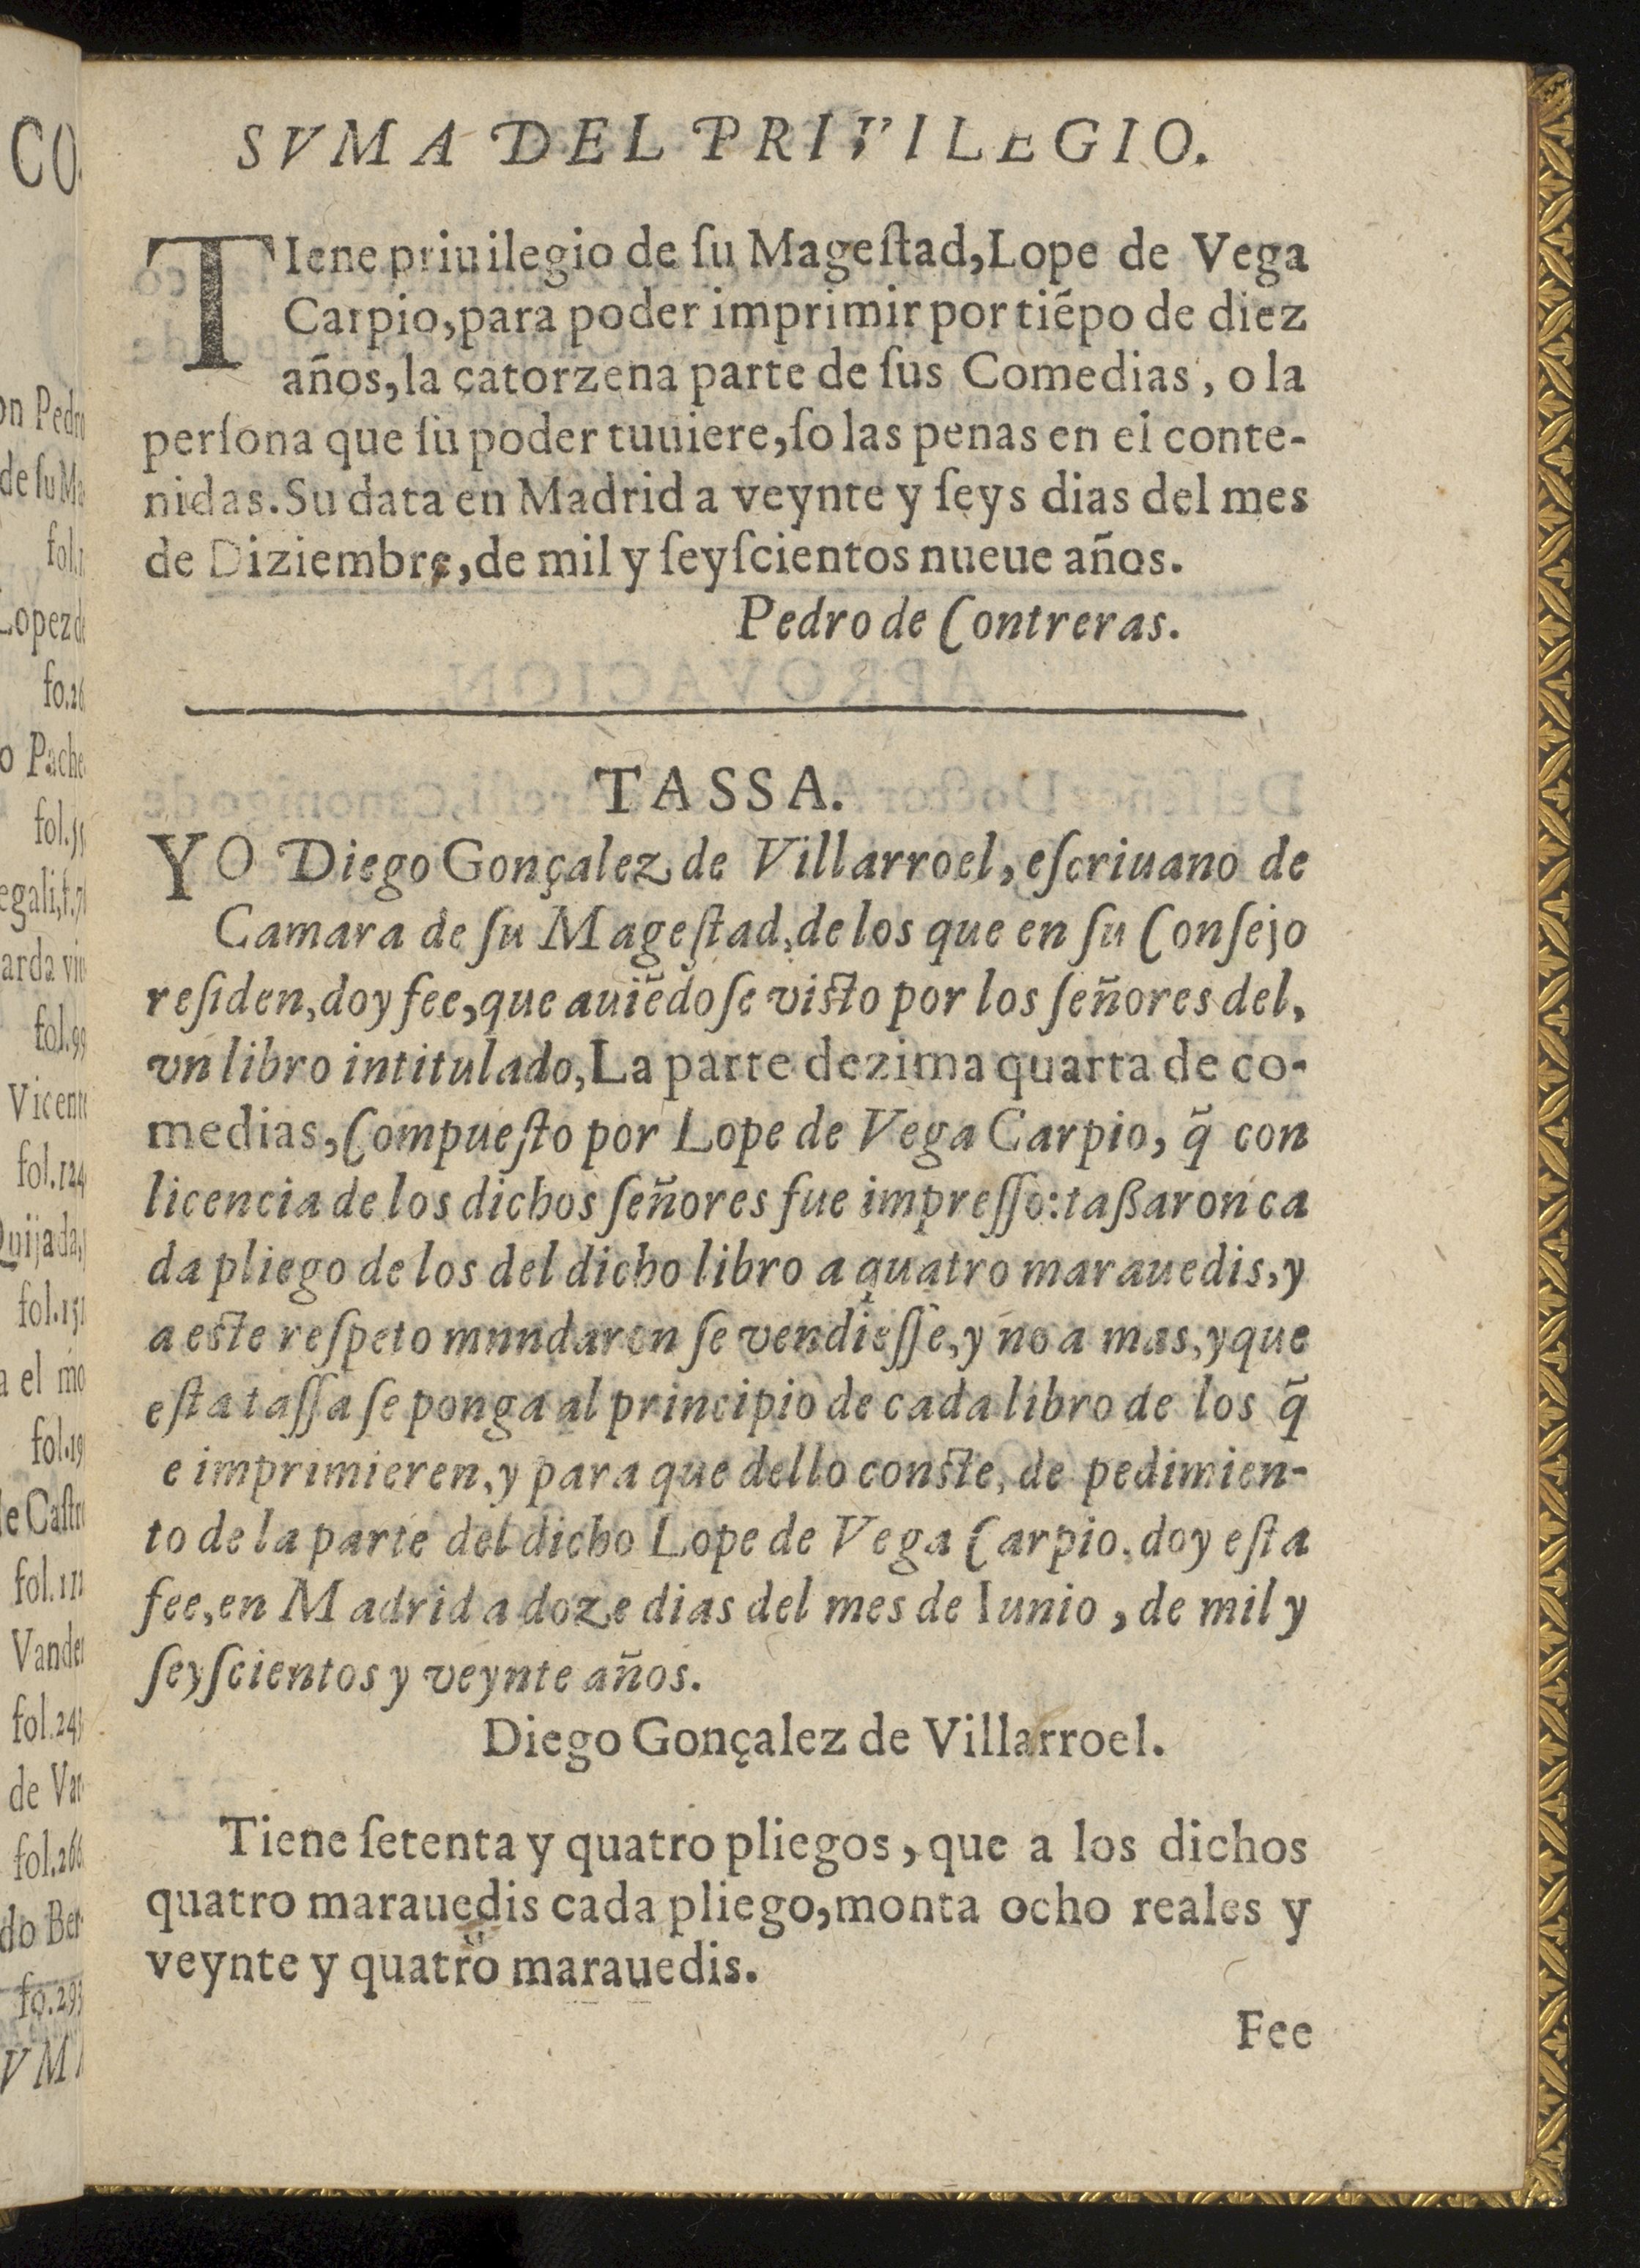 SVMA DEL PRIVILEGIO.
TIene priuilegio de ſu Mageſtad,Lope de Vega
Carpio,para poder imprimir por tiẽpo de diez
años,la catorzena parte de ſus Comedias, o la
perſona que ſu poder tuuiere,ſo las penas en el conte-
nidas.Su data en Madrid a veynte y ſeys dias del mes
de Diziembre,de mil y ſeyſcientos nueue años.
Pedro de Contreras.
TASSA.
YO Diego Gonçalez de Villarroel, eſcriuano de
Camara de ſu Mageſtad,de los que en ſu Conſejo
reſiden,doy fee,que auiẽdoſe viſto por los ſeñores del,
vn libro intitulado,La parte dezima quarta de co-
medias,Compueſto por Lope de Vega Carpio, q̃ con
licencia de los dichos ſeñores fue impreſſo:taßaron ca
da pliego de los del dicho libro a quatro marauedis,y
a eſte reſpeto mnndaron ſe vendieſſe,y no a mas,y que
eſta taſſa ſe ponga al principio de cada libro de los q̃
e imprimieren,y para que dello conſte, de pedimien-
to de la parte del dicho Lope de Vega Carpio,doy eſta
fee,en Madrid a doze dias del mes de Iunio, de mil y
ſeyſcientos y veynte años.
Diego Gonçalez de Villarroel.
Tiene ſetenta y quatro pliegos, que a los dichos
quatro marauedis cada pliego,monta ocho reales y
veynte y quatro marauedis.
Fee